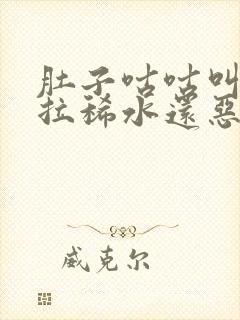 肚子咕咕叫
拉稀水還惡
威克尔